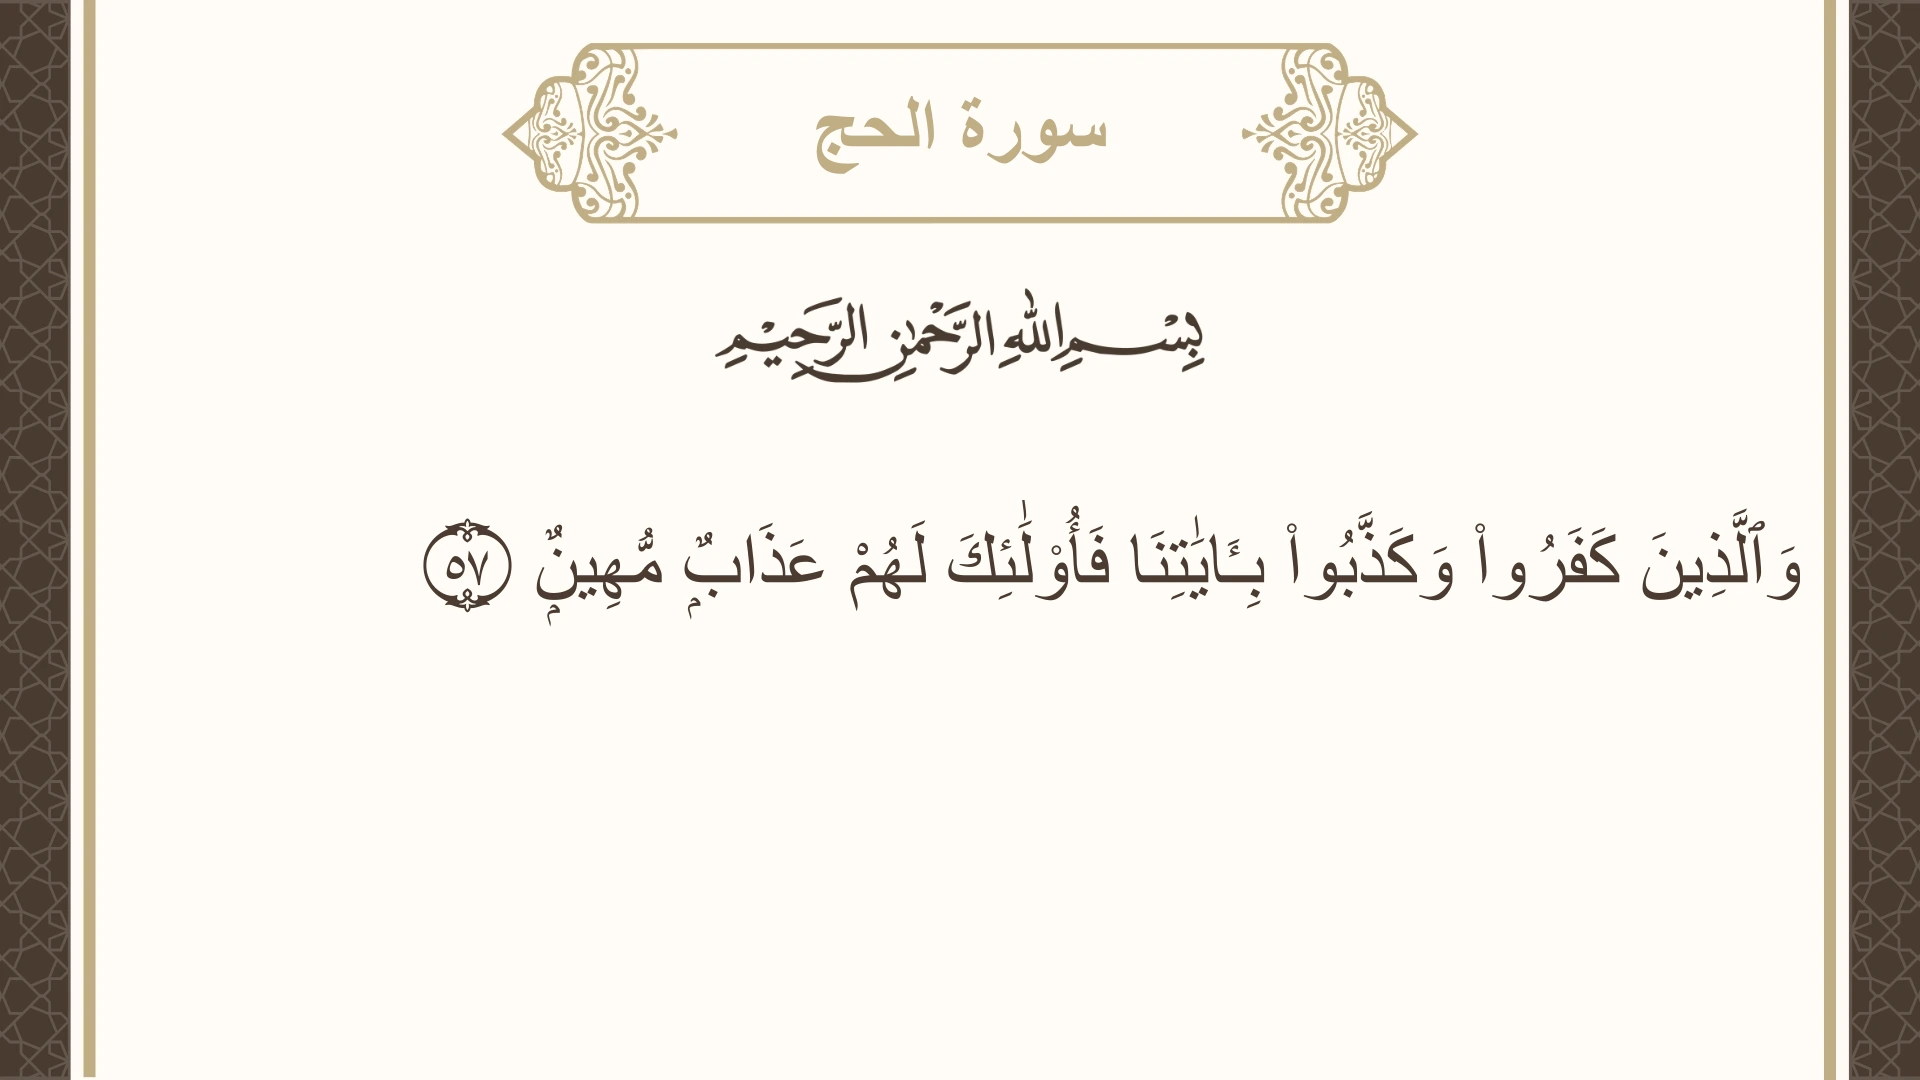 سورة الحج
بِسْمِ اللهِ الرَّحْمٰنِ الرَّحِيْمِ
وَٱلَّذِينَ كَفَرُوا۟ وَكَذَّبُوا۟ بِـَٔايَـٰتِنَا فَأُو۟لَـٰٓئِكَ لَهُمْ عَذَابٌۭ مُّهِينٌۭ ۝٥٧